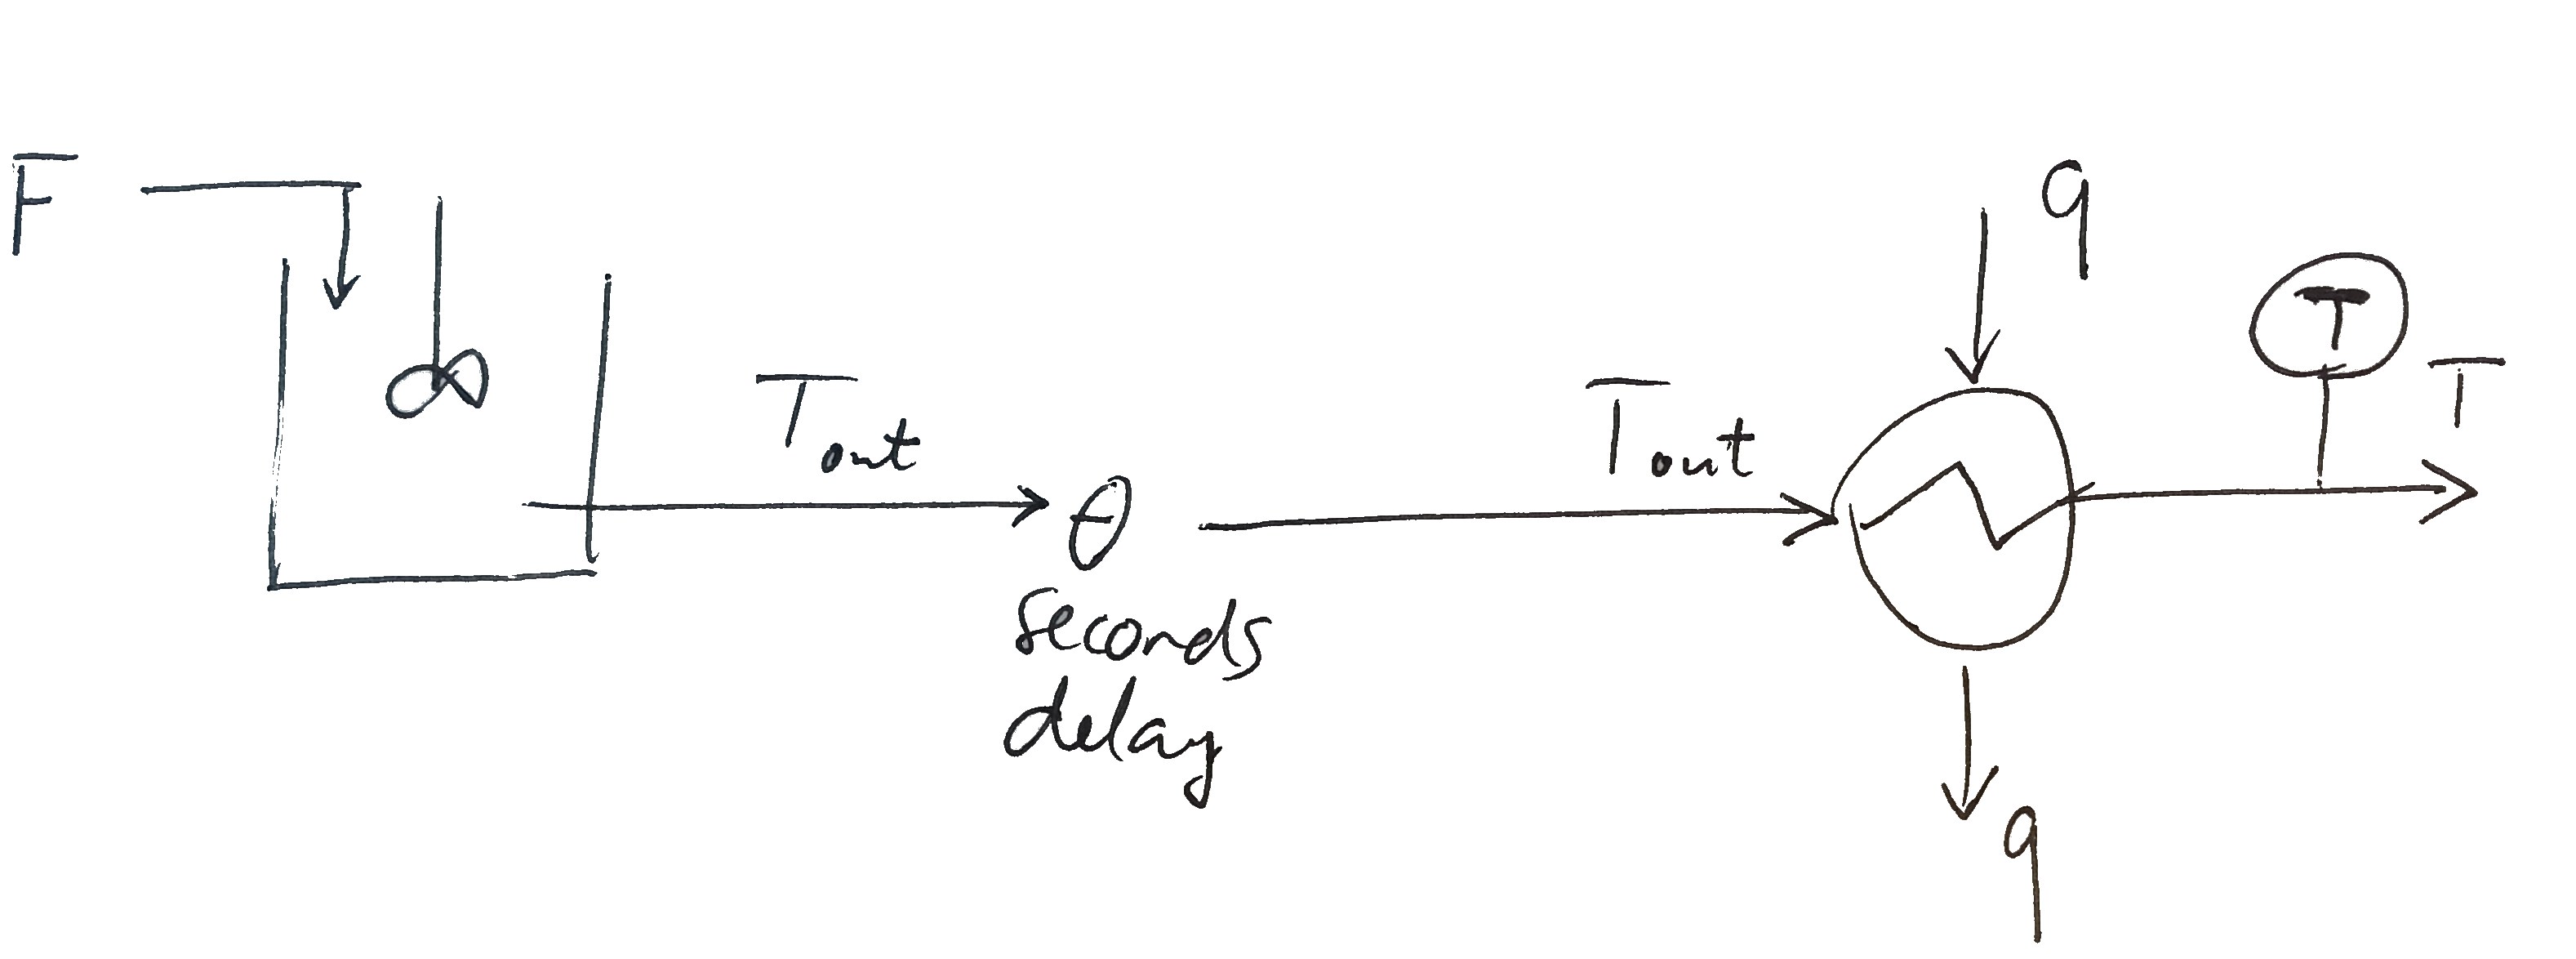 F
T out
θ
seconds
delay
T out
q
q
T
T